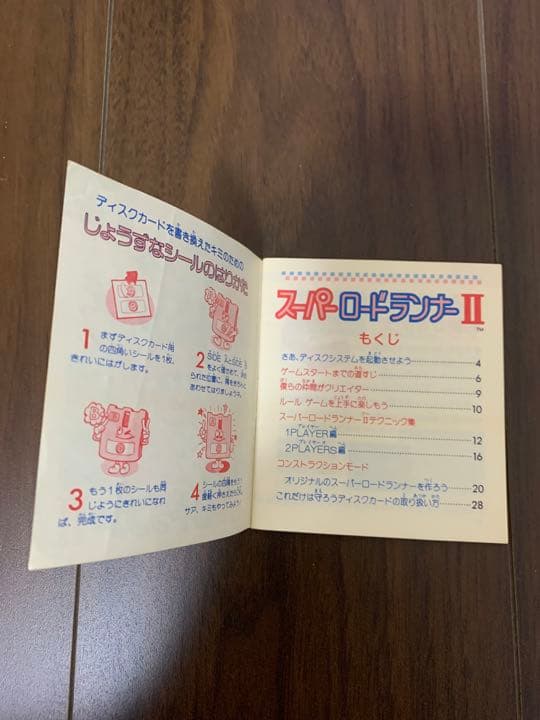 ディスクカードを書き換えたキミのための
じょうずなシールのはりかた
1 まずディスクカード用
の四角いシールを1枚、
きれいにはがします。
2 SIDE AとSIDE B
をよく確かめて、
られた位置に、角をきちんと
あわせてはりましょう。
3 もう1枚のシールも同
じようにきれいになれ
ば、完成です。
4 シールの四角をもう1
度軽く押さえたら
サア、キミもやってみよう!
スーパーロードランナーII
TM
もくじ
さあ、ディスクシステムを起動させよう 4
ゲームスタートまでの道すじ 6
僕らの仲間がクリエイター 9
ルール ゲームを上手に楽しもう 10
スーパーロードランナーIIテクニック集
1PLAYER編 12
2PLAYERS編 16
コンストラクションモード
オリジナルのスーパーロードランナーを作ろう 20
これだけは守ろうディスクカードの取り扱い方 28